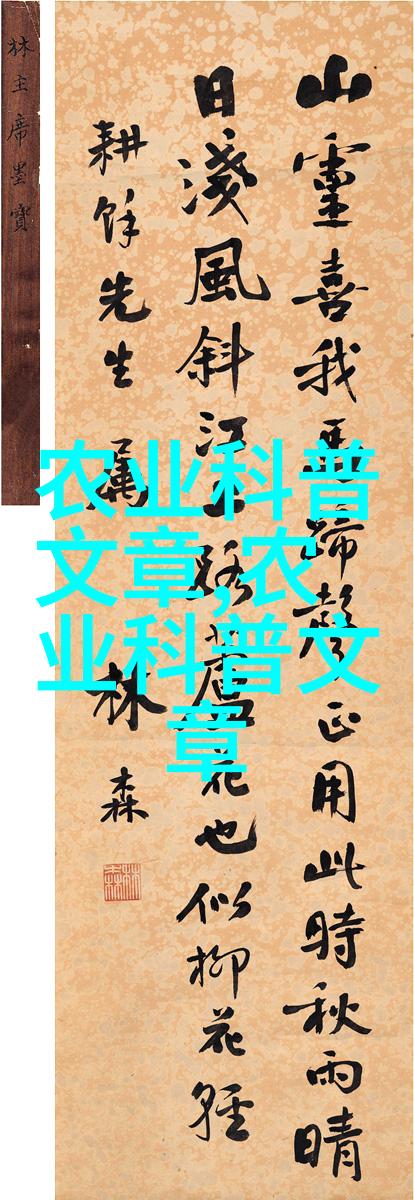 山靈喜我馬蹄聲正用此時秋雨晴
日淺風斜江上路蘆花也似柳花輕
耕餘先生屬
林森
林主席墨寶
农业科普
文章,农
业科普文
章